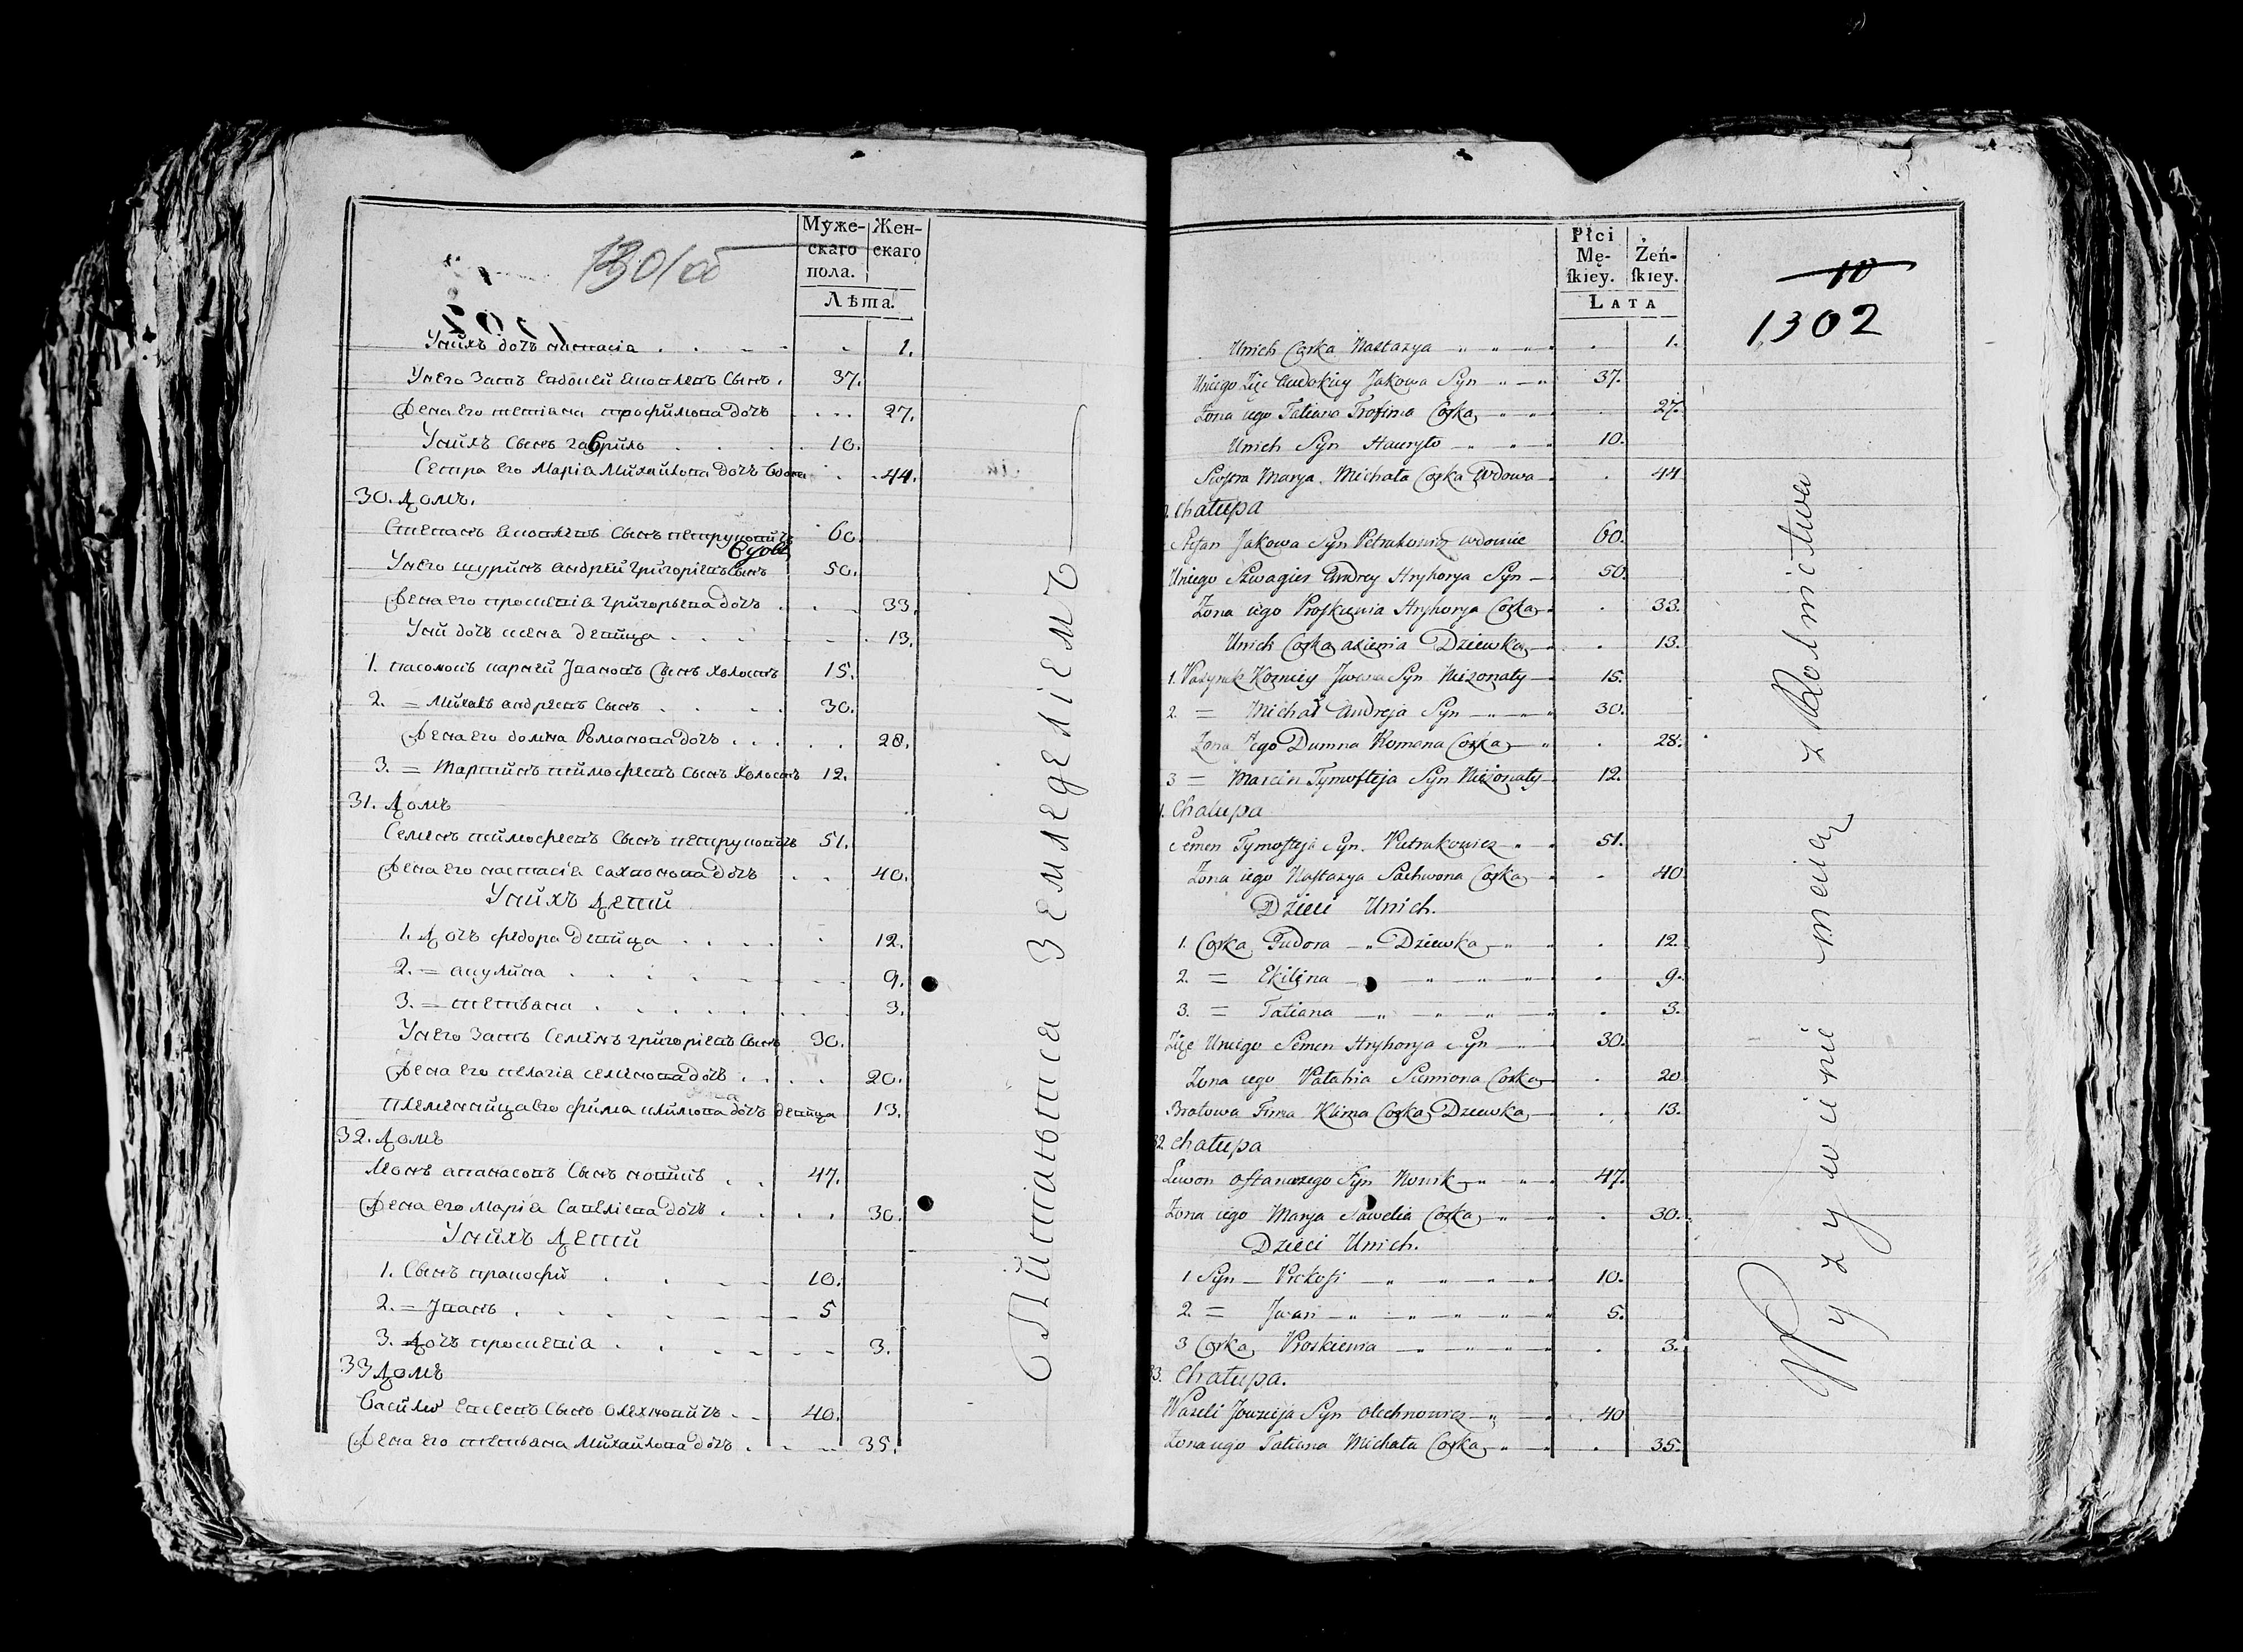 1301об
Муже-
скаго
пола.
Жен-
скаго
Лѣта.
Унихъ дочь настасіа 1.
Унего Зать Евдокей Яковлевъ Сынъ 37.
Жена его тетіана трофимова дочь 27.
Унихъ Сынъ гаврило 10.
Сестра его Маріа Михайлова дочь вдова 44.
30. Домъ.
Степанъ Яковлевъ Сынъ петруковичъ вдовъ 60.
Унего шуринъ андрей григоріевъ Сынъ 50.
Жена его проскевіа григорьева дочь 33.
Уни дочь девица 13.
1. пасонокъ карней Івановъ Сынъ холостъ 15.
2. = Михалъ андреевъ Сынъ 30.
Жена его домна Романова дочь 28.
3. = Мартинъ тимофеевъ Сынъ холостъ 12.
31. Домъ
Семенъ тимофеевъ Сынъ петруковичъ 51.
Жена его настасіа сахвонова дочь 40.
Унихъ Дети
1. Дочь федора девица 12.
2. = акулина 9.
3. = тетьвана 3.
Унего Зать Семенъ григоріевъ Сынъ 30.
Жена его пелагіа семенова дочь 20.
племенница его фима климова дочь девица 13.
32. Домъ
Леонъ апанасовъ Сынъ новикъ 47.
Жена его Маріа Савеліева дочь 30.
Унихъ Дети
1. Сынъ пракофи 10.
2. = Іванъ 5
3. Дочь проскевіа 3.
33 Домъ
Василь Евсеевъ Сынъ Олехновичъ 40.
Жена его тетьвана Михайлова дочь 35.
Питаютса Земледеліемъ
Płci
Mę-
ſkiey.
Żeń-
ſkiey.
LATA
10
1302
Unich Corka Nastazya 1.
Uniego Zięc Audokiey Jakowa Syn 37.
Zona iego Tatiana Trofima Corka 27.
Unich Syn Hauryło 10.
Siostra Marya Michała Corka Wdowa 44
Chałupa
Stefan Jakowa Syn Petrukowicz wdowiec 60.
Uniego Szwagier Andrey Hryhorya Syn 50.
Zona iego Proskiewia Hryhorya Corka 33.
Unich Corka axienia Dziewka 13.
1. Pasynek Korniey Jwana Syn Niezonaty 15.
2. = Michał Andreja Syn 30.
Zona Jego Dumna Romana Corka 28.
3 = Marcin Tymofieja Syn Nieżonaty 12.
Chałupa
Semen Tymofieja Syn Petrukowicz 51.
Zona iego Nastazya Sachwona Corka 40
Dzieci Unich.
1. Corka Fudora Dziewka 12.
2. = Ekilina 9.
3. = Tatiana 3.
Zięc Uniego Semen Hryhorya Syn 30.
Zona iego Pałahia Siemiona Corka 20
Bratowa Fima Klima Corka Dziewka 13.
32. Chałupa
Lewon Syn Nowik 47.
Zona iego Marya Sawelia Corka 30.
Dzieci Unich.
1 Syn Prokofi 10.
2. = Jwan 5.
3 Corka Proskiewia 3.
33. Chałupa.
Wasili Jowsieja Syn olechnowicz 40
Zona iego Tatiana Michała Corka 35.
Wyzywienie maią z Rolnictwa